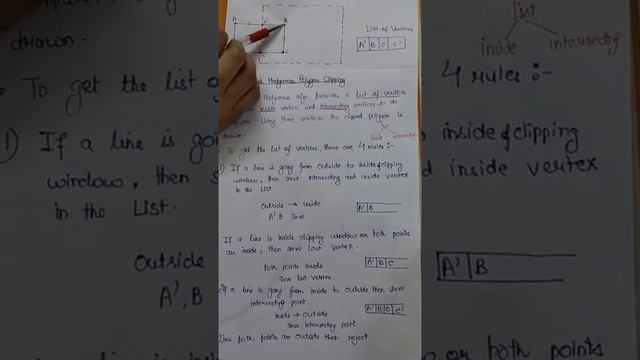 A
A'
B
C
List of Vertices
A' B C C'
Hodgeman Polygon Clipping
Hodgeman algo provides a list of vertex
inside vertex and intersecting vertices to the
Using these vertices the clipped polygon is
drawn.
list
inside intersecting
To get the list of vertices, there are 4 rules :-
1) If a line is going from outside to inside of clipping
window, then save intersecting and inside vertex
in the List
Outside → inside
A', B save
A' B
If a line is inside clipping window or both points
are inside, then save last vertex.
Both points inside
save last vertex.
A' B C
If a line is going from inside to outside then save
intersecting point.
inside → outside
save intersecting point.
A' B C C'
Line both points are outside then reject.